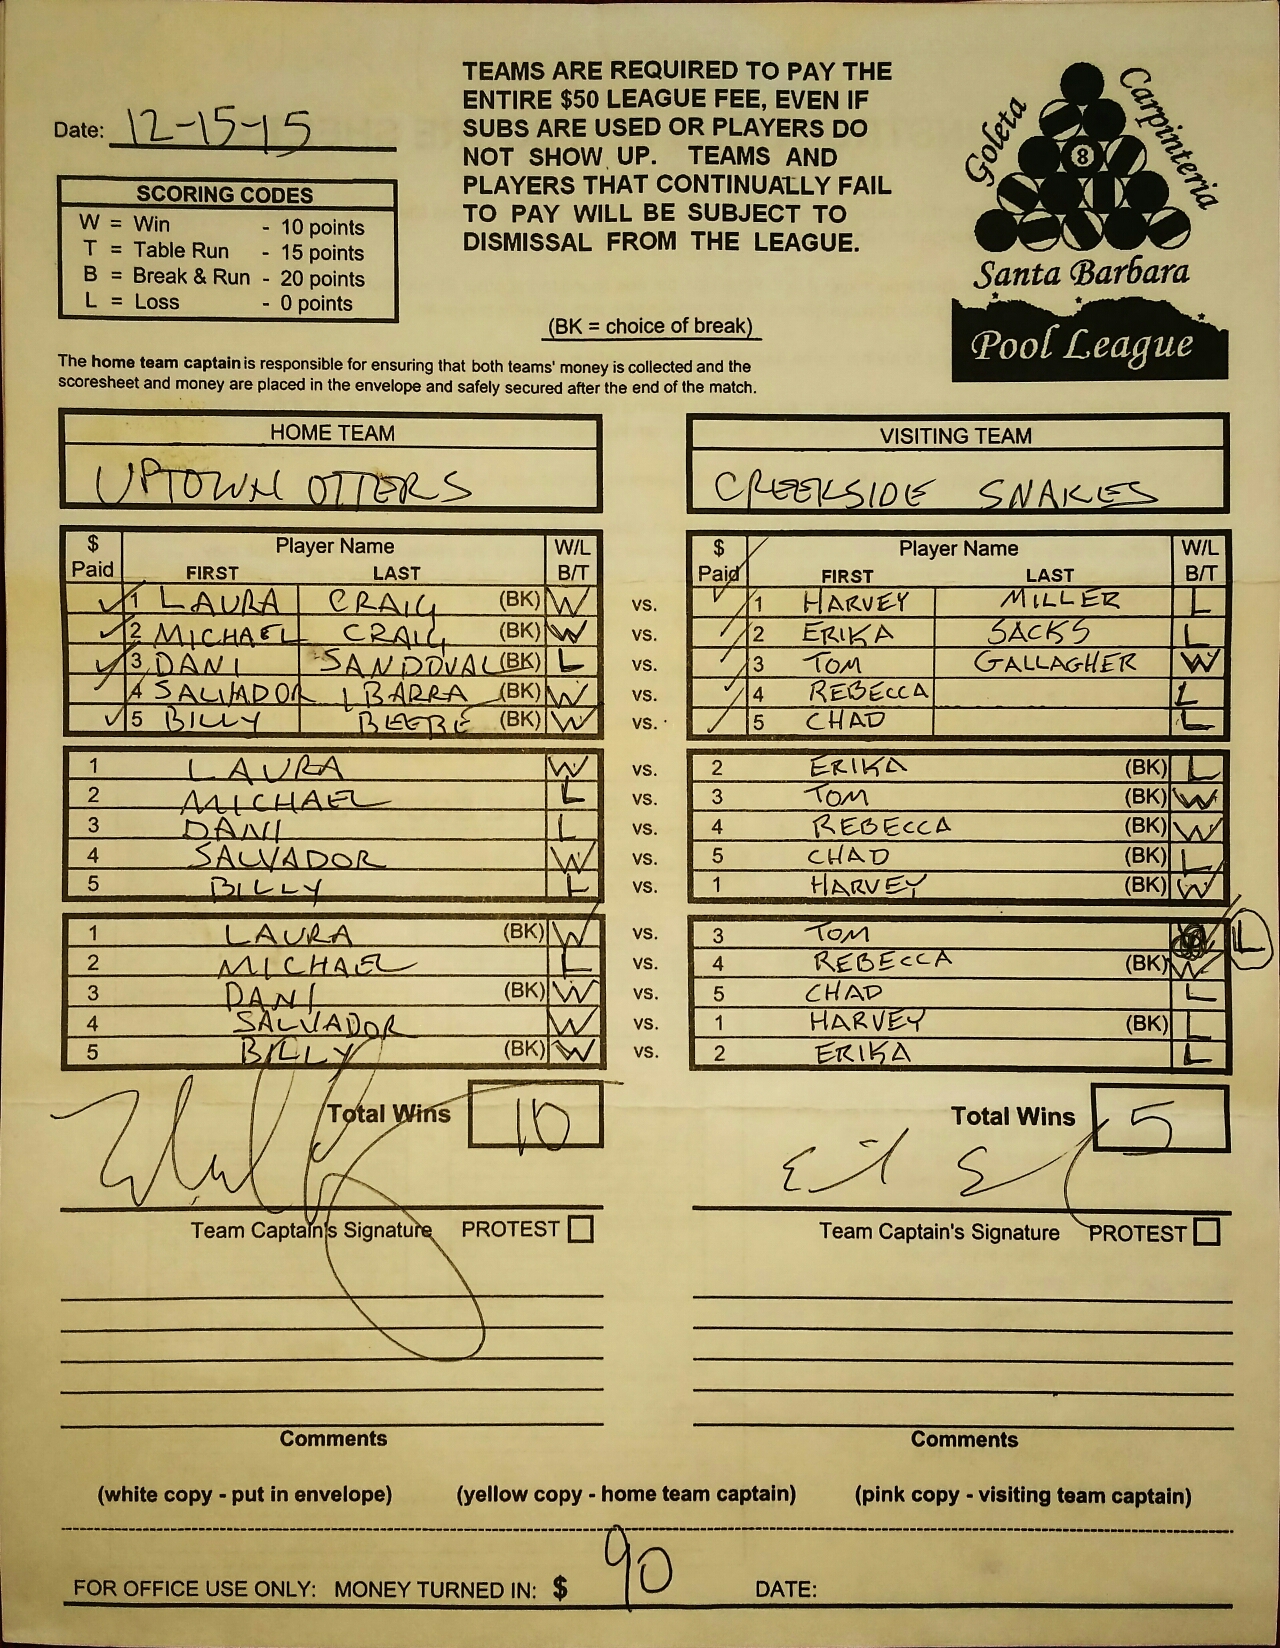 Date: 12-15-15
TEAMS ARE REQUIRED TO PAY THE
ENTIRE $50 LEAGUE FEE, EVEN IF
SUBS ARE USED OR PLAYERS DO
NOT SHOW UP. TEAMS AND
PLAYERS THAT CONTINUALLY FAIL
TO PAY WILL BE SUBJECT TO
DISMISSAL FROM THE LEAGUE.
Goleta
Carpinteria
8
Santa Barbara
Pool League
SCORING CODES
W = Win - 10 points
T = Table Run - 15 points
B = Break & Run - 20 points
L = Loss - 0 points
(BK = choice of break)
The home team captain is responsible for ensuring that both teams' money is collected and the
scoresheet and money are placed in the envelope and safely secured after the end of the match.
HOME TEAM VISITING TEAM
UPTOWN OTTERS CREEKSIDE SNAKES
$ Player Name W/L $ Player Name W/L
Paid FIRST LAST B/T Paid FIRST LAST B/T
1 LAURA CRAIG (BK) W vs. 1 HARVEY MILLER L
2 MICHAEL CRAIG (BK) W vs. 2 ERIKA SACKS L
3 DANI SANDOVAL (BK) L vs. 3 TOM GALLAGHER W
4 SALVADOR IBARRA (BK) W vs. 4 REBECCA L
5 BILLY BEEBE (BK) W vs. 5 CHAD L
1 LAURA W vs. 2 ERIKA (BK) L
2 MICHAEL L vs. 3 TOM (BK) W
3 DANI L vs. 4 REBECCA (BK) W
4 SALVADOR W vs. 5 CHAD (BK) L
5 BILLY L vs. 1 HARVEY (BK) W
1 LAURA (BK) W vs. 3 TOM L
2 MICHAEL L vs. 4 REBECCA (BK) W
3 DANI (BK) W vs. 5 CHAD L
4 SALVADOR W vs. 1 HARVEY (BK) L
5 BILLY (BK) W vs. 2 ERIKA L
Total Wins 10 Total Wins 5
Team Captain's Signature PROTEST Team Captain's Signature PROTEST
Comments Comments
(white copy - put in envelope) (yellow copy - home team captain) (pink copy - visiting team captain)
FOR OFFICE USE ONLY: MONEY TURNED IN: $ 90 DATE: